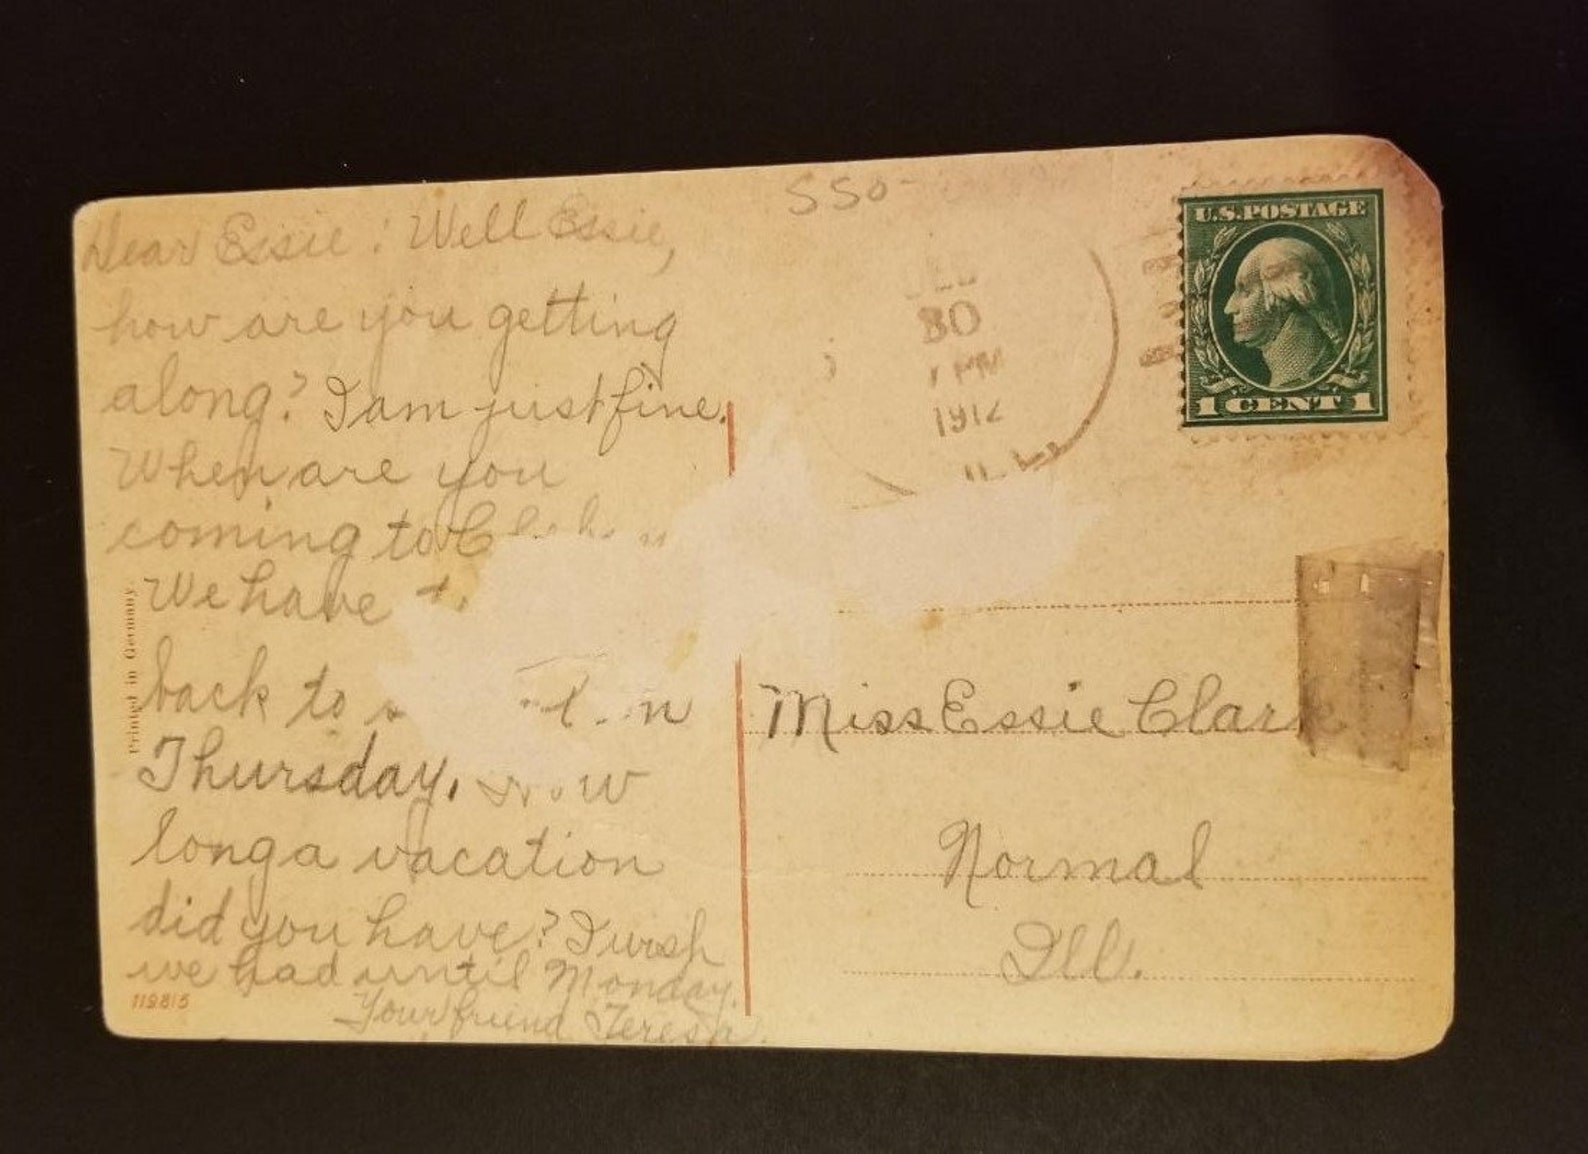 Dear Essie: Well Essie,
how are you getting
along? I am just fine.
When are you
coming to
We have
back to
Thursday.
long a vacation
did you have? I wish
we had until Monday.
Your friend Teresa.
Printed in Germany.
119815
550-
30
PM
1912
ILL.
U.S. POSTAGE
1 CENT 1
Miss Essie Clark
Normal
Ill.